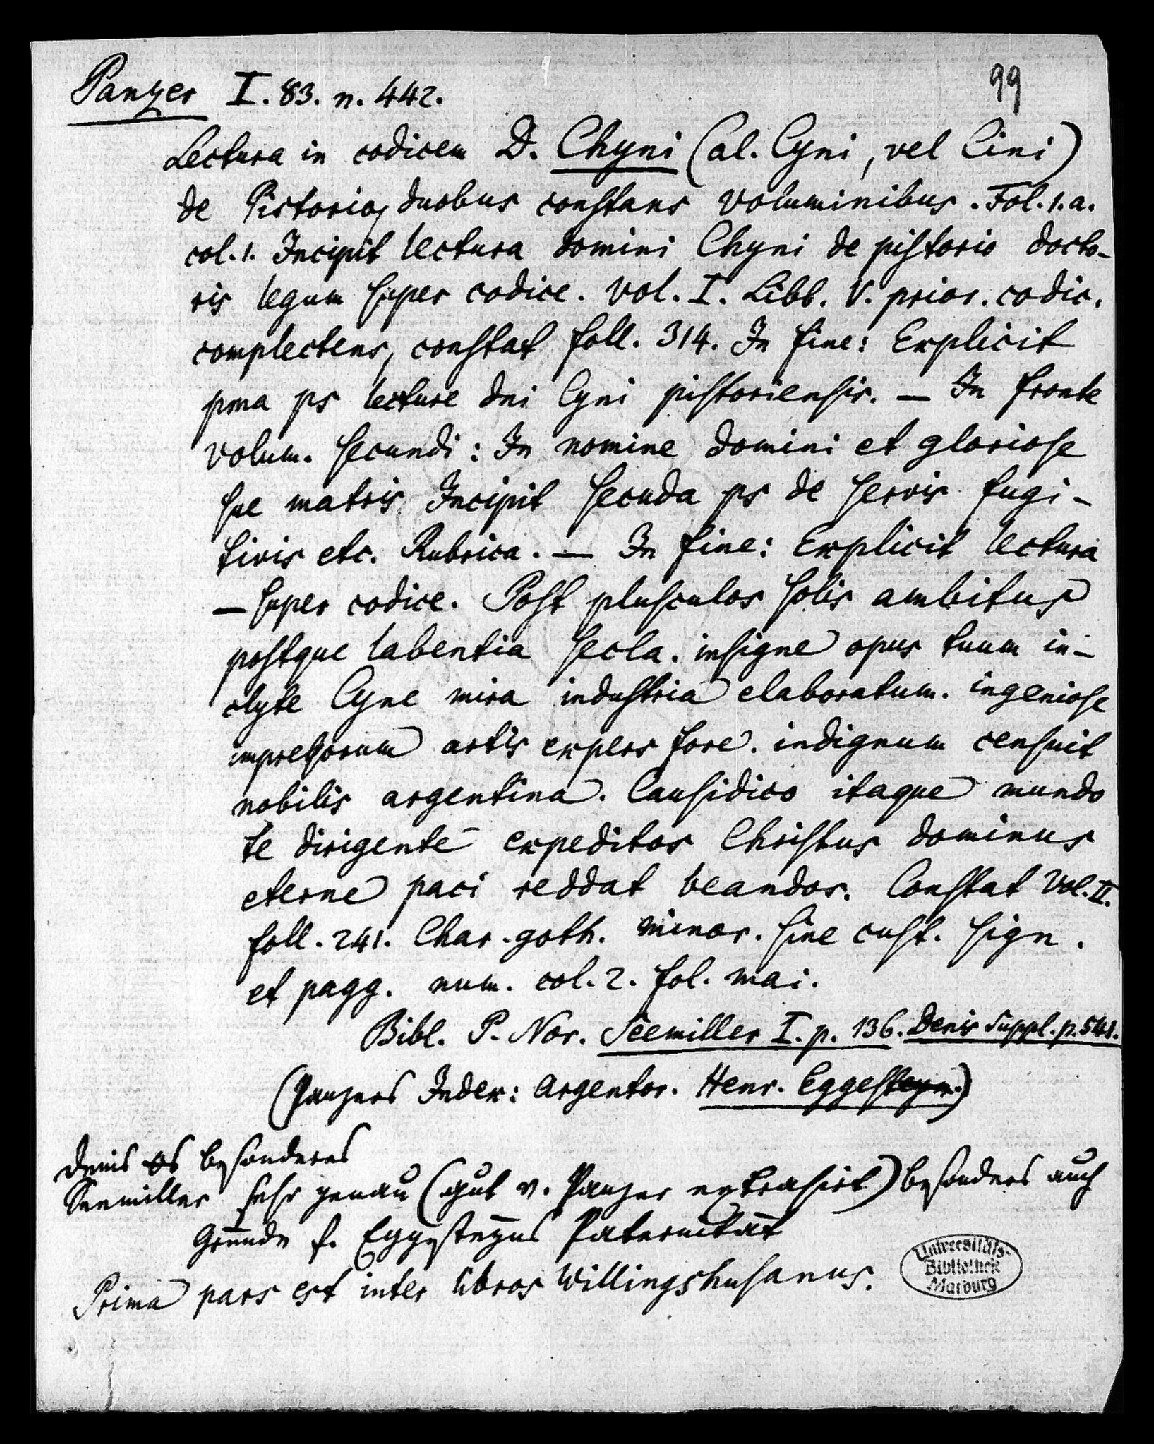 99
Panzer I. 83. n. 442.
Lectura in codicem D. Chyni (al. Cyni, vel Cini)
de Pistorio, duobus constans voluminibus. Fol. 1. a.
col. 1. Incipit lectura domini Chyni de pistorio docto-
ris legum super codice. vol. I. Libb. V. prior. codic.
complectens, constat foll. 314. In fine: Explicit
pma ps lecture dni Cyni pistoriensis. — In fronte
volum. secundi: In nomine domini et gloriose
sue matris. Incipit secuda ps de servis fugi-
tivis etc. Rubrica. — In fine: Explicit lectura
— super codice. Post plusculos solis ambitus
postque labentia secla. insigne opus tuum in-
clyte Cyne mira industria elaboratum. ingeniose
impressorum artis expers fore. indignum censuit
nobilis argentina. Causidico itaque mundo
te dirigentē expeditos Christus dominus
eterne paci reddat beandos. Constat Vol. II.
foll. 241. Char. goth. minor. sine cust. sign.
et pagg. num. col. 2. fol. mai.
Bibl. P. Nor. Seemiller I. p. 136. Denis Suppl. p. 541.
(Panzers Index: Argentor. Henr. Eggesteyn.)
Denis besonderes
Seemiller sehr genau (gut v. Panzer extrahirt) besonders auch
Gründe f. Eggesteyns Paternität
Prima pars est inter libros Willingshusanus.
Universitäts-
Bibliothek
Marburg